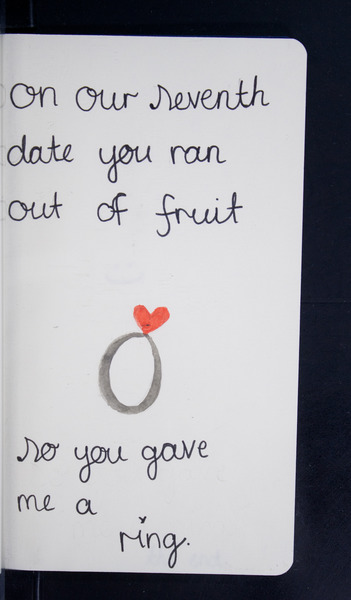 on our seventh
date you ran
out of fruit
so you gave
me a
ring.